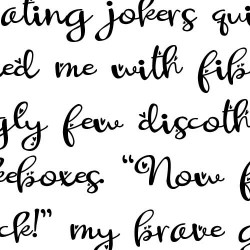 ating jokers qui
ed me with fib
gly few discoth
eboxes. “Now f
ck!” my brave g